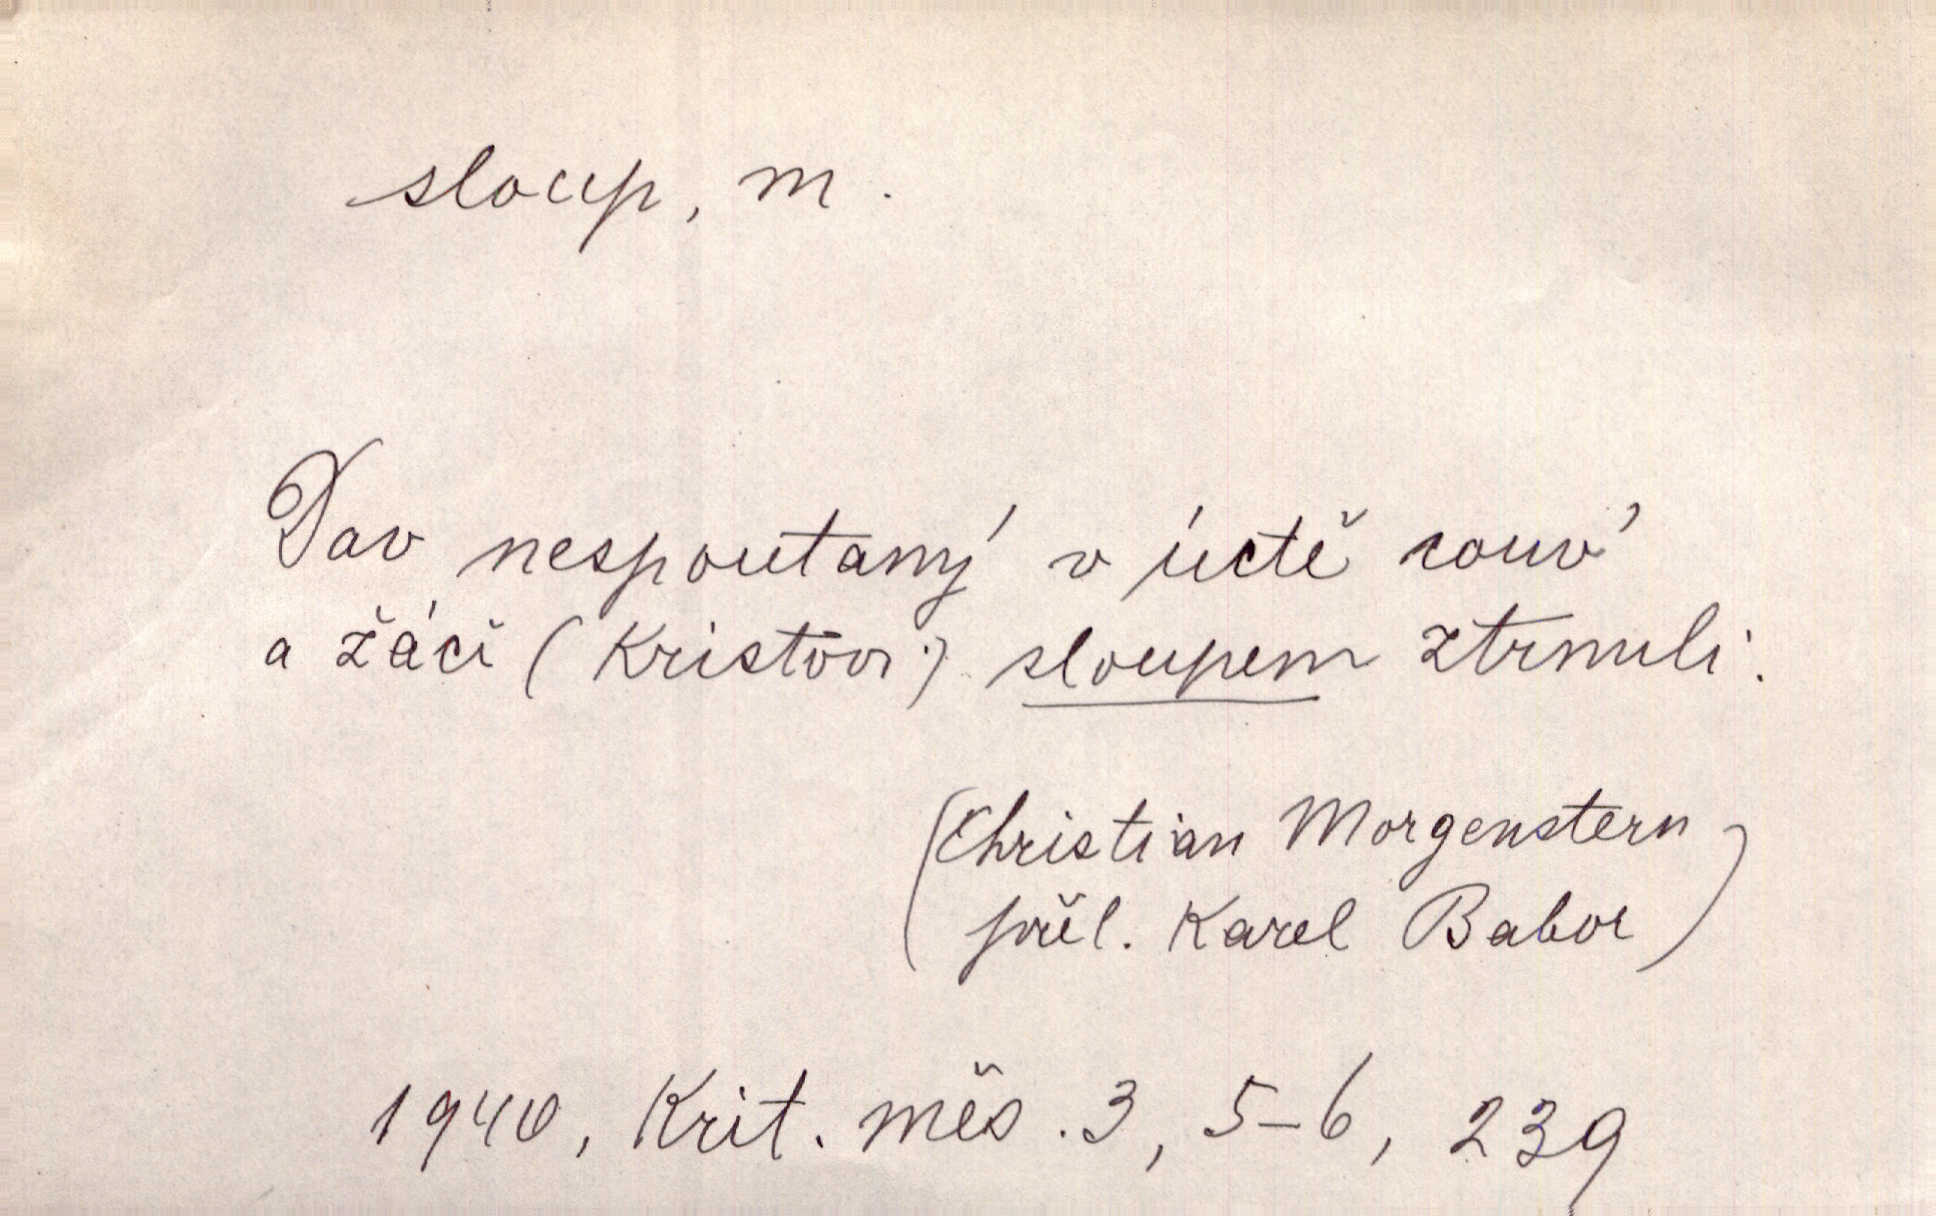 sloup, m.
Dav nespoutaný v úctě couv'
a žáci (Kristovi) sloupem ztrnuli.
(Christian Morgenstern
přel. Karel Babor)
1940, Krit. měs. 3, 5-6, 239